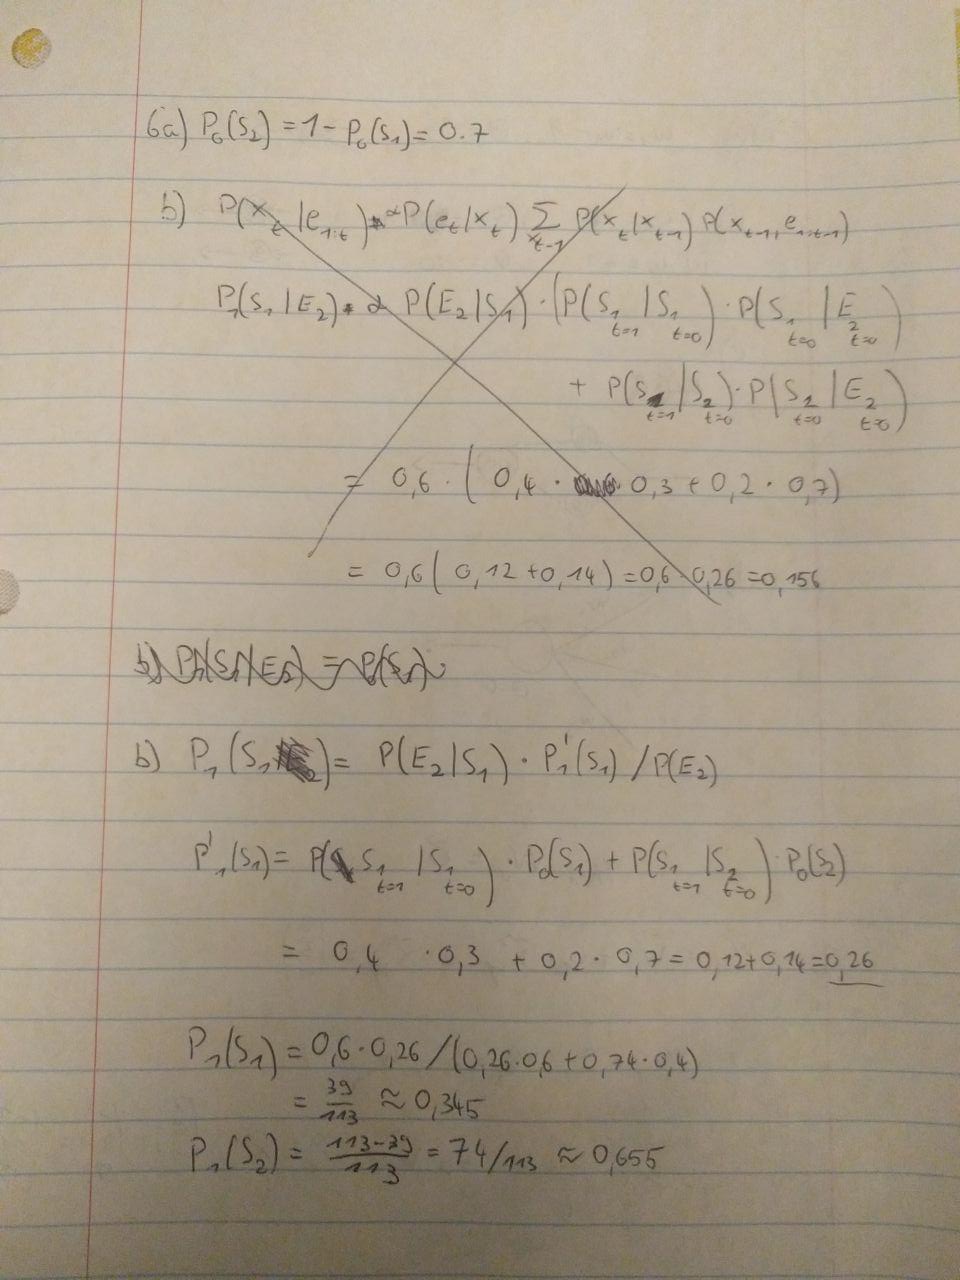 6a) P₀(S₂) = 1 - P₀(S₁) = 0.7
b) P(x_t | e_1:t) = αP(e_t | x_t) Σ_x_t-1 P(x_t | x_t-1) P(x_t-1, e_1:t-1)
P₁(S₁ | E₂) = α P(E₂ | S₁) · (P(S₁ t=1 | S₁ t=0) · P(S₁ t=0 | E₂ t=0)
+ P(S₁ t=1 | S₂ t=0) · P(S₂ t=0 | E₂ t=0)
= 0,6 · ( 0,4 · 0,3 + 0,2 · 0,7)
= 0,6 ( 0,12 + 0,14 ) = 0,6 · 0,26 = 0,156
b) P₁(S₁ | E₂) = P(S₁)
b) P₁(S₁) = P(E₂ | S₁) · P'₁(S₁) / P(E₂)
P'₁(S₁) = P(S₁ t=1 | S₁ t=0) · P₀(S₁) + P(S₁ t=1 | S₂ t=0) · P₀(S₂)
= 0,4 · 0,3 + 0,2 · 0,7 = 0,12 + 0,14 = 0,26
P₁(S₁) = 0,6 · 0,26 / (0,26 · 0,6 + 0,74 · 0,4)
= 39/113 ≈ 0,345
P₁(S₂) = 113-39/113 = 74/113 ≈ 0,655